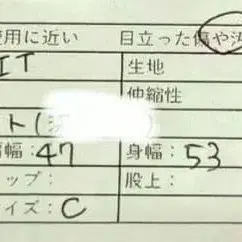 使用に近い 目立った傷や汚
IT 生地
伸縮性
ト(
肩幅：47 身幅：53
ップ： 股上：
イズ：C